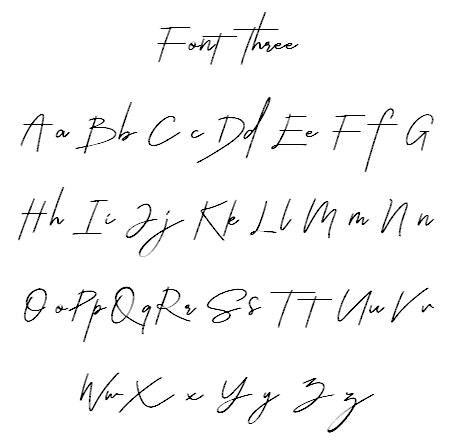 Font Three
A a B b C c D d E e F f G
H h I i J j K k L l M m N n
O o P p Q q R r S s T t U u V v
W w X x Y y Z z